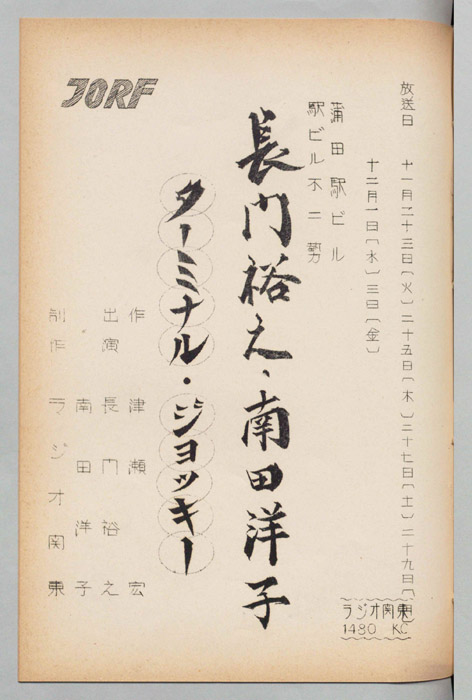 放送日 十一月二十三日〔火〕二十五日〔木〕二十七日〔土〕二十九日〔月〕
十二月一日〔水〕三日〔金〕
蒲田駅ビル
駅ビル不二勢
長門裕之、南田洋子
ターミナル・ジョッキー
JORF
作 津瀬宏
出演 長門裕之
南田洋子
制作 ラジオ関東
ラジオ関東
1480 KC